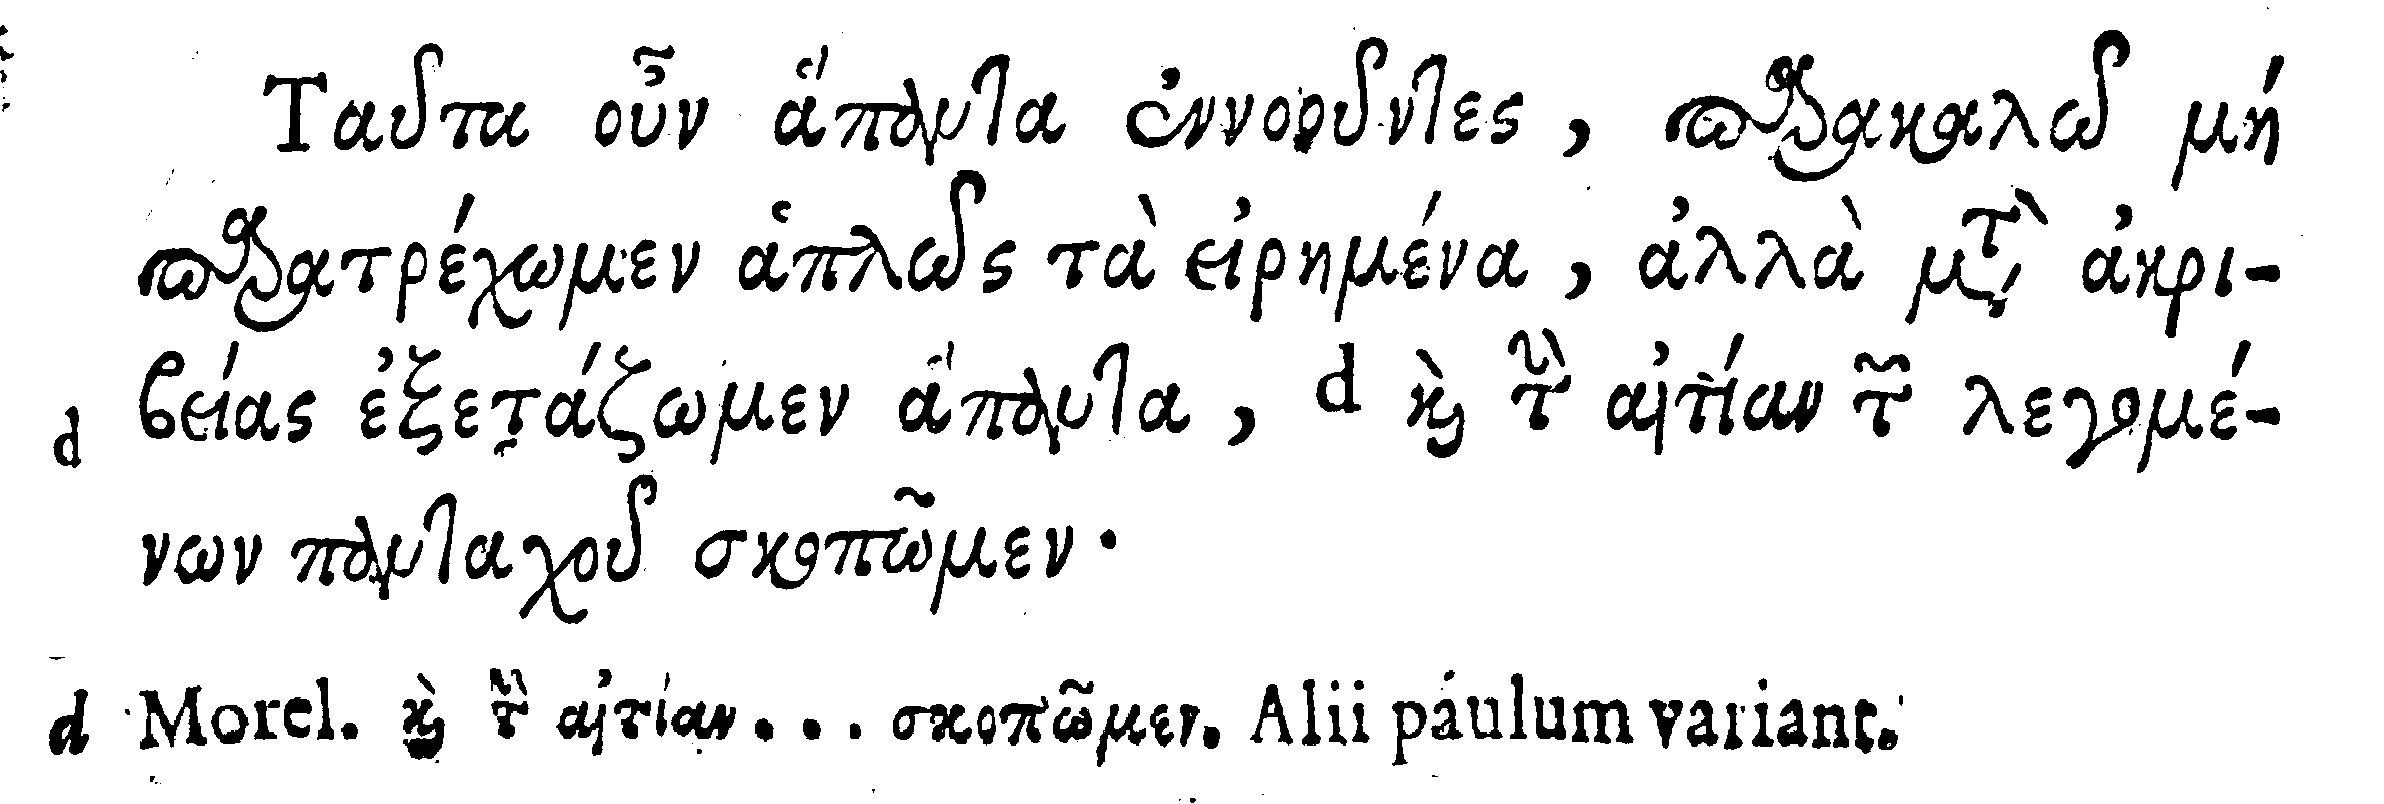 Ταῦτα οὖν ἅπαντα ἐννοοῦντες, παρακαλῶ μή
παρατρέχωμεν ἁπλῶς τὰ εἰρημένα, ἀλλὰ μετὰ ἀκρι-
d βείας ἐξετάζωμεν ἅπαντα, d καὶ τὴν αἰτίαν τῶν λεγομέ-
νων πανταχοῦ σκοπῶμεν.
d Morel. καὶ τὴν αἰτίαν... σκοπῶμεν. Alii paulum variant.